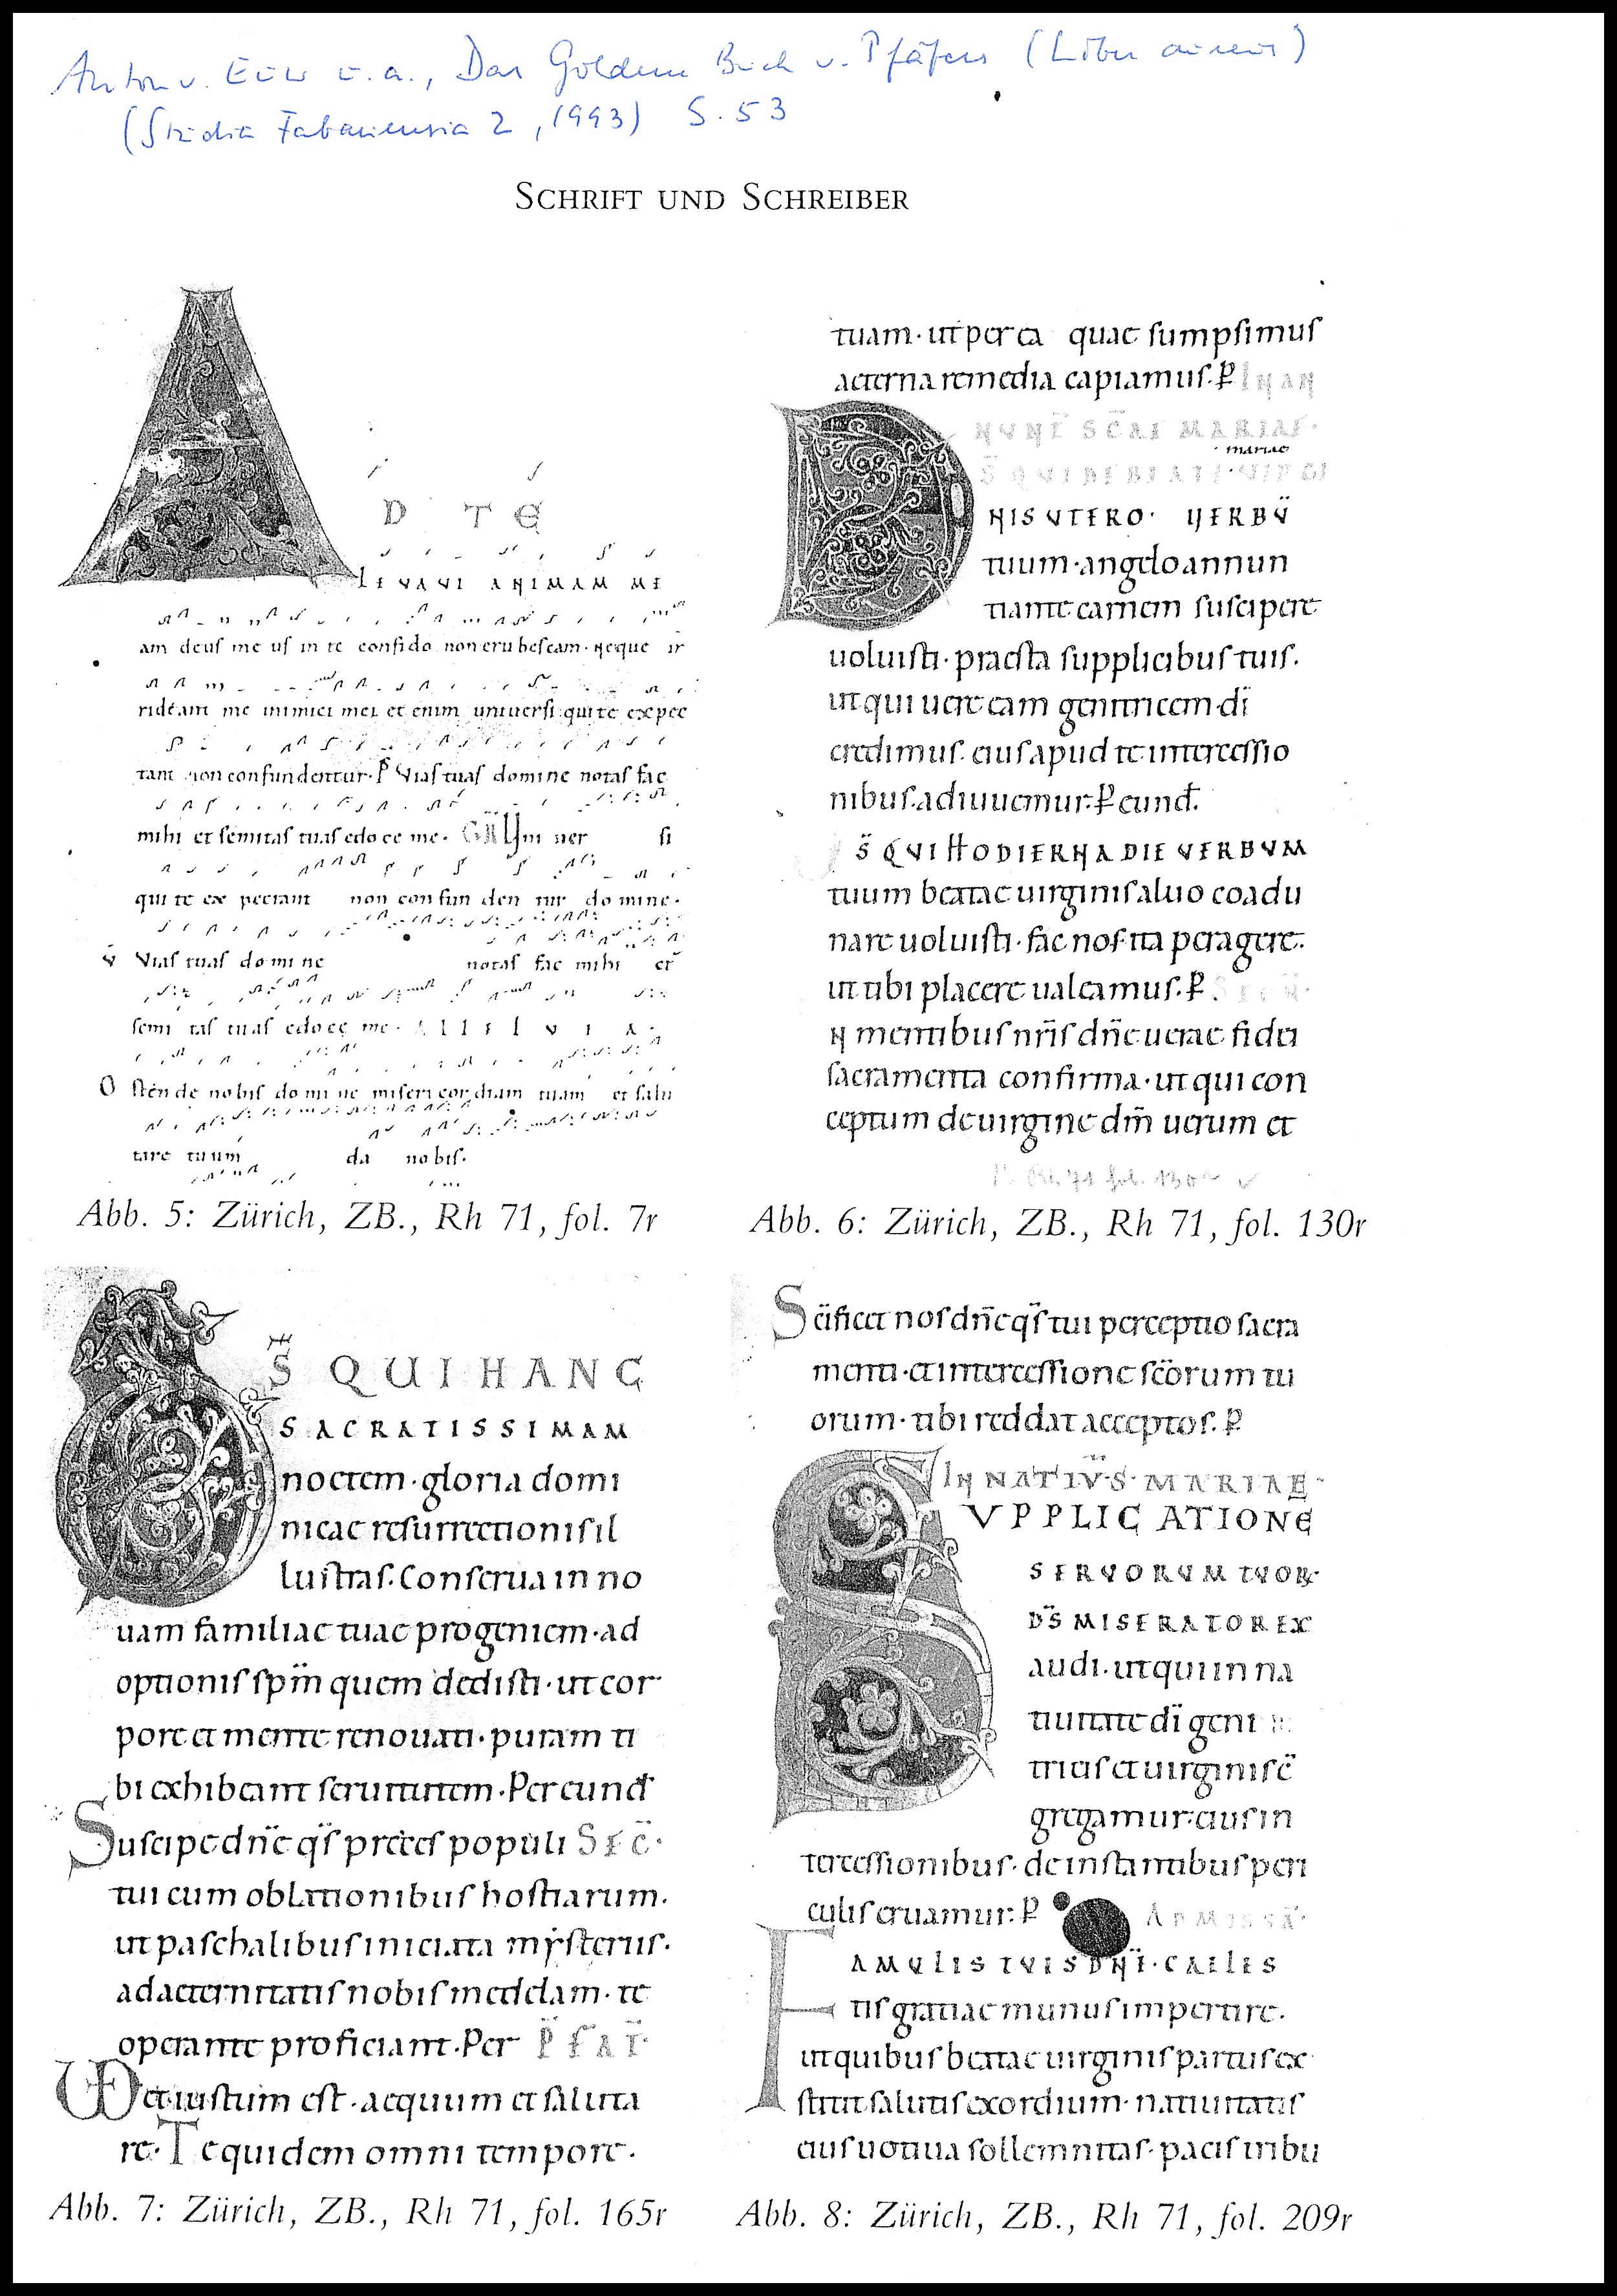 Anton v. Euw u.a., Das Goldene Buch v. Pfäfers (Liber aureus)
(Studia Fabariensia 2, 1993) S. 53
SCHRIFT UND SCHREIBER
A
D TE
LEVAVI ANIMAM ME
am deuſ me uſ in te confido non erubeſcam· neque ir
rideant me inimici mei et enim univerſi qui te expec
tant non confundentur· P Viaſ tuaſ domine notaſ fac
mihi et ſemitaſ tuaſ edo ce me· GR Uni uer ſi
qui te ex pectant non con fun den tur do mine·
V Viaſ tuaſ do mi ne notaſ fac mihi et
ſemi taſ tuaſ edo ce me· A l l e l v i a·
O ſten de nobiſ do mi ne miſeri cor diam tuam et ſalu
tare tuum da nobiſ·
Abb. 5: Zürich, ZB., Rh 71, fol. 7r
tuam· ut per ea quae ſumpſimuſ
aeterna remedia capiamuſ. P IN AN
NUNT SCAE MARIAE·
mariae
D S QUI DE BEATE· VIRGI
NIS VTERO· VERBŪ
tuum· angelo annun
tiante carnem ſuſcipere
uoluiſti· praeſta ſupplicibuſ tuiſ.
ut qui uere eam genitricem· dī
credimuſ. eiuſ apud te interceſſio
nibuſ. adiuuemur. P eund.
DS QUI HODIERNA DIE VERBVM
tuum beatae uirginiſ aluo coadu
nare uoluiſti· fac noſ· ita peragere.
ut tibi placere ualeamuſ. P
N mentibuſ nr̄iſ dn̄e uerae fidei
ſacramenta confirma· ut qui con
ceptum de uirgine dm̄ uerum et
Rh. 71 fol. 130r
Abb. 6: Zürich, ZB., Rh 71, fol. 130r
DS QUI HANC
SACRATISSIMAM
noctem· gloria domi
nicae reſurrectioniſ il
luſtraſ. Conſerua in no
uam familiae tuae progeniem· ad
optioniſ ſpm̄ quem dediſti· ut cor
pore et mente renouati· puram ti
bi exhibeant ſeruitutem· Per eund
Suſcipe dn̄e qſ̄ preceſ populi SEC̄·
tui cum oblationibuſ hoſtiarum.
ut paſchalibuſ initiata myſteriiſ.
ad aeternitatiſ nobiſ medelam· te
operante proficiant. Per P̄ F A T̄·
VD et iuſtum eſt· aequum et ſaluta
re· Te quidem omni tempore·
Abb. 7: Zürich, ZB., Rh 71, fol. 165r
Sc̄ificet noſ dn̄e qſ̄ tui perceptio ſacra
menti· et interceſſione ſc̄orum tu
orum· tibi reddat acceptoſ. P
IN NATIV· S· MARIAE·
SVPPLICATIONE
SERVORVM TVOR·
DS̄ MISERATOR EX
audi· ut qui in na
tiuitate dī geni
triciſ et uirginiſ c̄
gregamur· eiuſ in
terceſſionibuſ· de inſtantibuſ peri
culiſ eruamur: P AD MISSĀ·
FAMULIS TUIS DN̄E· CAELES
tiſ gratiae munuſ impertire.
ut quibuſ beatae uirginiſ partuſ ex
ſtitit ſalutiſ exordium· natiuitatiſ
eiuſ uotiua ſollemnitaſ· paciſ tribu
Abb. 8: Zürich, ZB., Rh 71, fol. 209r